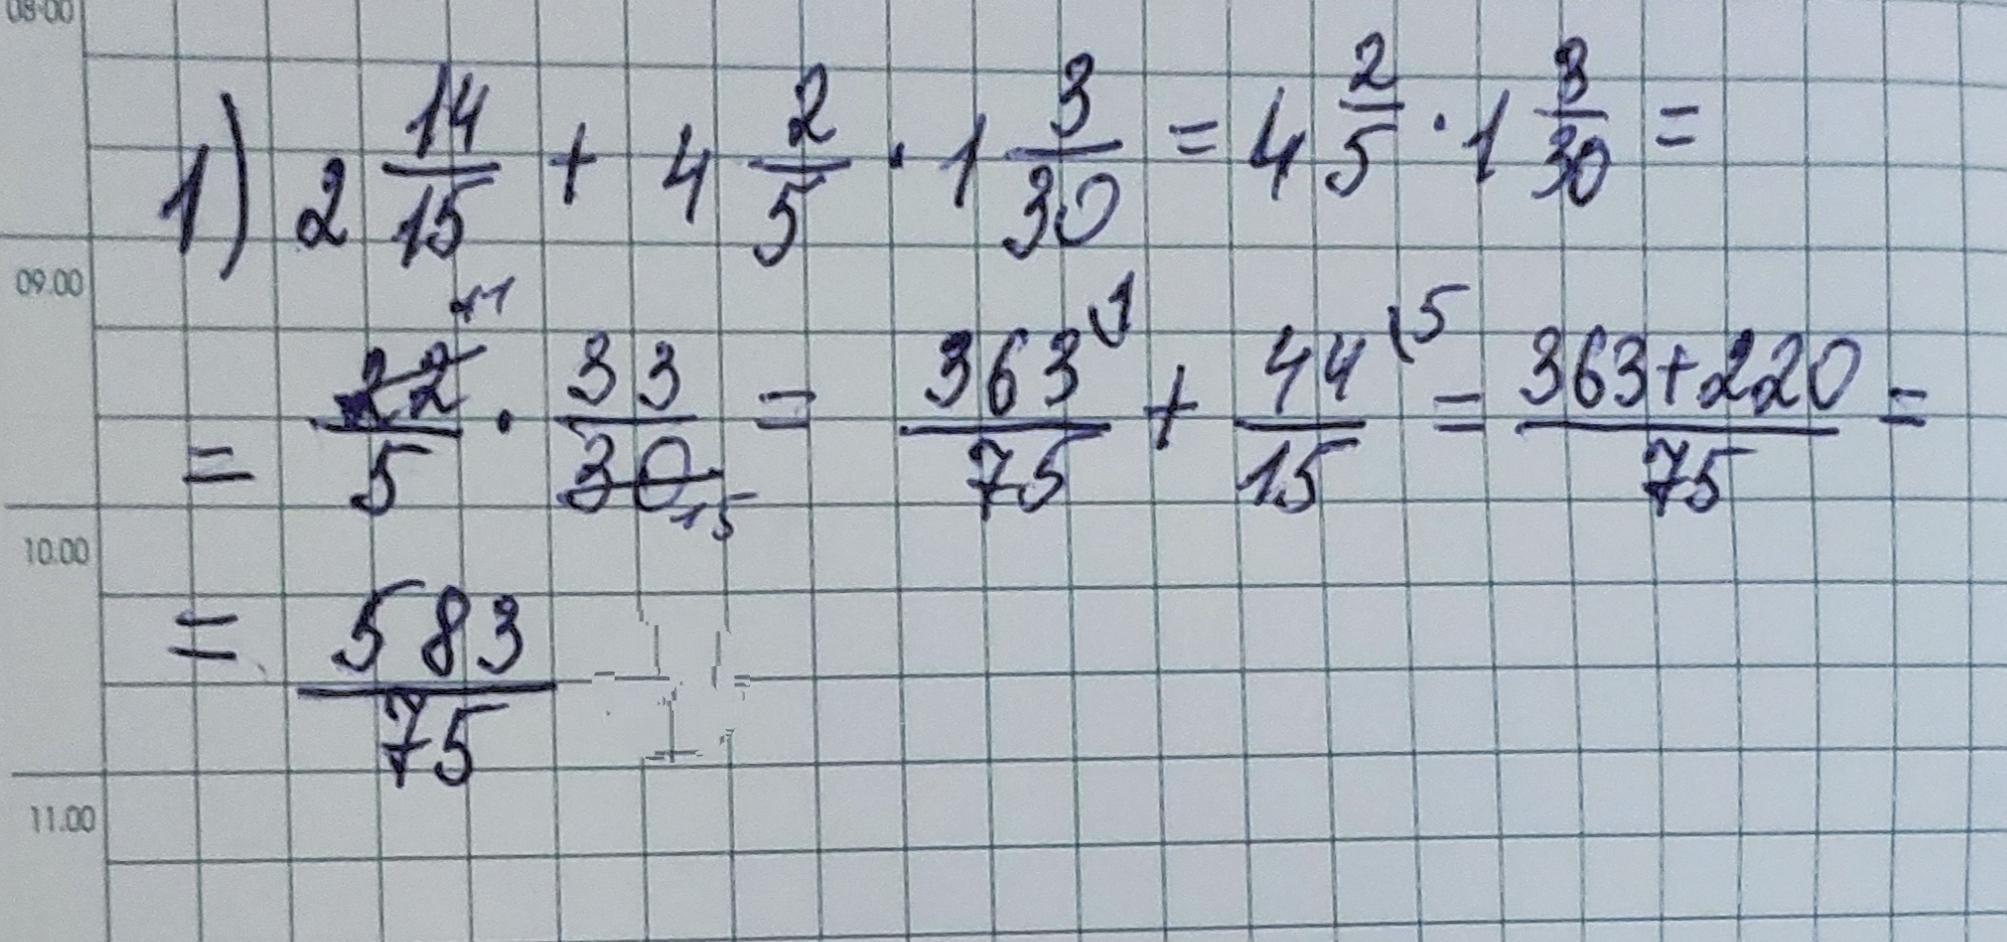 08:00
1) 2 14/15 + 4 2/5 · 1 3/30 = 4 2/5 · 1 3/30 =
09.00
= 22 11/5 · 33/30 15 = 363 \1/75 + 44 \5/15 = 363+220/75 =
10.00
= 583/75
11.00